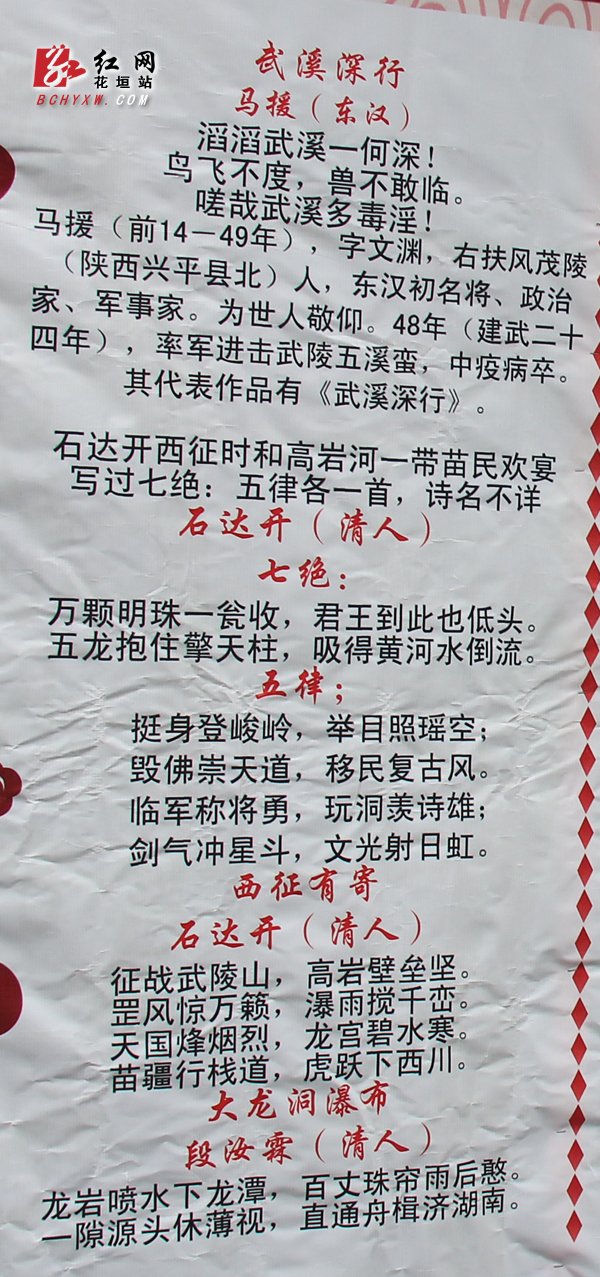 红网
花垣站
BCHYXW.COM
武溪深行
马援（东汉）
滔滔武溪一何深！
鸟飞不度，兽不敢临。
嗟哉武溪多毒淫！
马援（前14－49年），字文渊，右扶风茂陵
（陕西兴平县北）人，东汉初名将、政治
家、军事家。为世人敬仰。48年（建武二十
四年），率军进击武陵五溪蛮，中疫病卒。
其代表作品有《武溪深行》。
石达开西征时和高岩河一带苗民欢宴
写过七绝：五律各一首，诗名不详
石达开（清人）
七绝：
万颗明珠一瓮收，君王到此也低头。
五龙抱住擎天柱，吸得黄河水倒流。
五律；
挺身登峻岭，举目照瑶空；
毁佛崇天道，移民复古风。
临军称将勇，玩洞羡诗雄；
剑气冲星斗，文光射日虹。
西征有寄
石达开（清人）
征战武陵山，高岩壁垒坚。
罡风惊万籁，瀑雨搅千峦。
天国烽烟烈，龙宫碧水寒。
苗疆行栈道，虎跃下西川。
大龙洞瀑布
段汝霖（清人）
龙岩喷水下龙潭，百丈珠帘雨后憨。
一隙源头休薄视，直通舟楫济湖南。